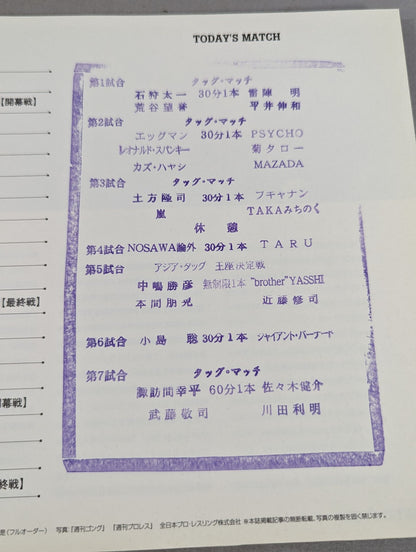 TODAY'S MATCH
【開幕戦】
【最終戦】
幕戦】
終戦】
第1試合 タッグ・マッチ
石狩太一 30分1本 雷陣 明
荒谷望誉 平井伸和
第2試合 タッグ・マッチ
エッグマン 30分1本 PSYCHO
レオナルド・スパンキー 菊タロー
カズ・ハヤシ MAZADA
第3試合 タッグ・マッチ
土方隆司 30分1本 ブキャナン
嵐 TAKAみちのく
休憩
第4試合 NOSAWA論外 30分1本 TARU
第5試合 アジア・タッグ 王座決定戦
中嶋勝彦 無制限1本 "brother"YASSHI
本間朋晃 近藤修司
第6試合 小島 聡 30分1本 ジャイアント・バーナード
第7試合 タッグ・マッチ
諏訪間幸平 60分1本 佐々木健介
武藤敬司 川田利明
是(フルオーダー) 写真:『週刊ゴング』 『週刊プロレス』 全日本プロ・レスリング株式会社 ※本誌掲載記事の無断転載、写真の複製を固く禁じます。